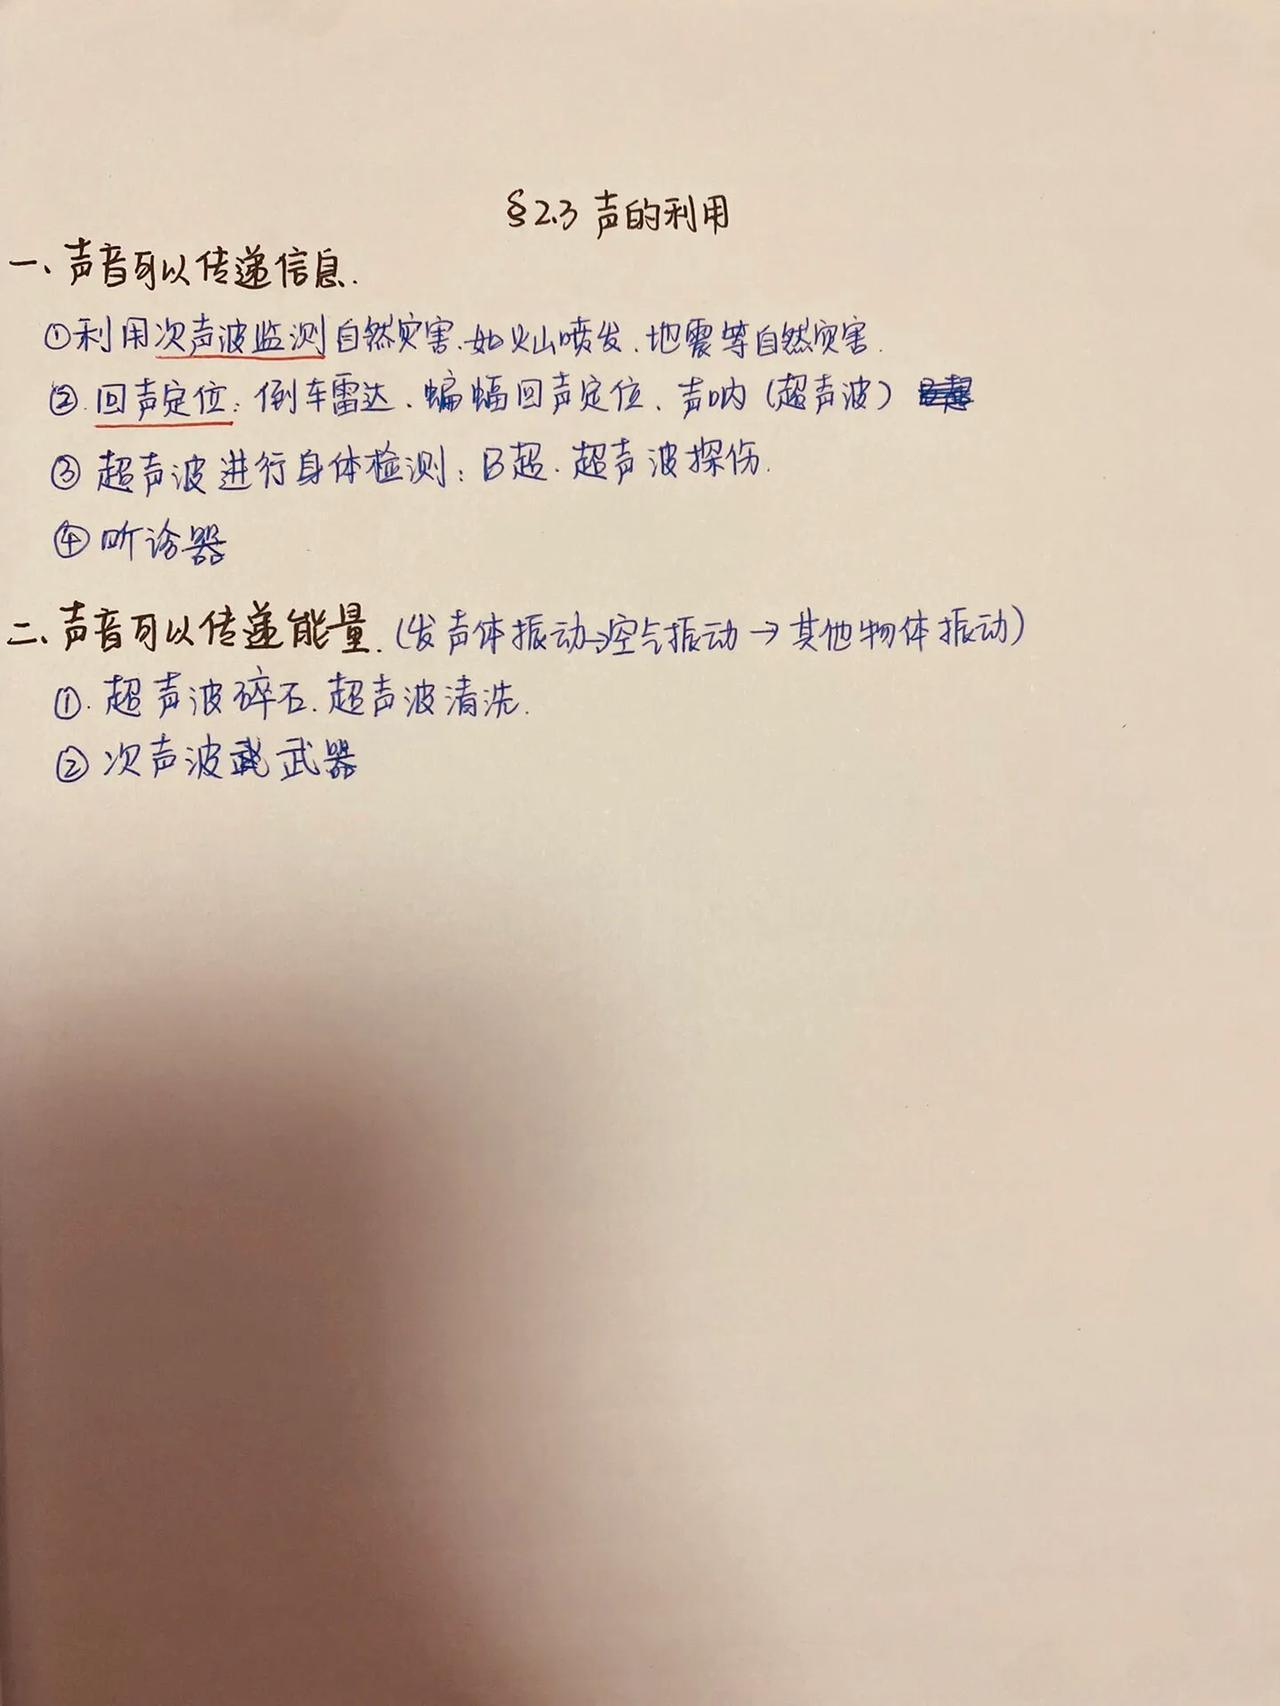 §2.3 声的利用
一、声音可以传递信息.
①利用次声波监测自然灾害.如火山喷发.地震等自然灾害.
②.回声定位:倒车雷达.蝙蝠回声定位、声呐(超声波)
③超声波进行身体检测:B超.超声波探伤.
④听诊器
二、声音可以传递能量.(发声体振动→空气振动→其他物体振动)
①.超声波碎石.超声波清洗.
②次声波武器